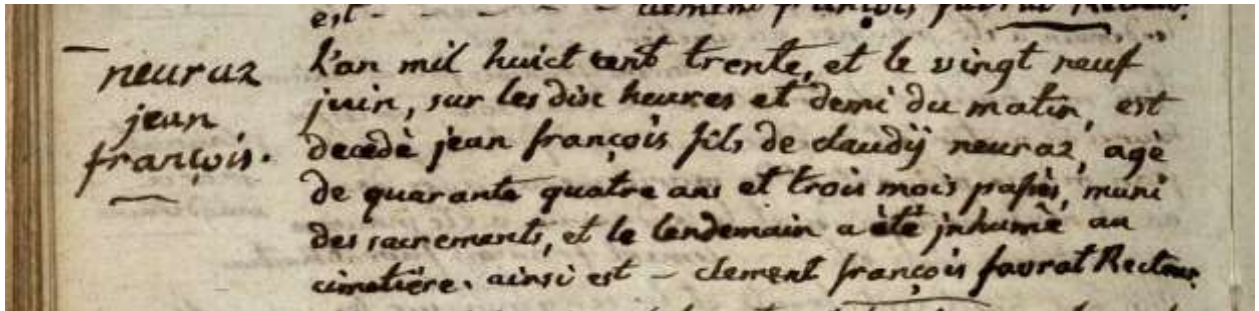 est - - - - - clement françois favrat Recteur.
neuraz
jean
françois.
L'an mil huict cent trente, et le vingt neuf
juin, sur les dix heures et demi du matin, est
decedè jean françois fils de claudÿ neuraz, agè
de quarante quatre ans et trois mois passès, muni
des sacrements, et le lendemain a ètè jnhumè au
cimetière. ainsi est - clement françois favrat Recteur.